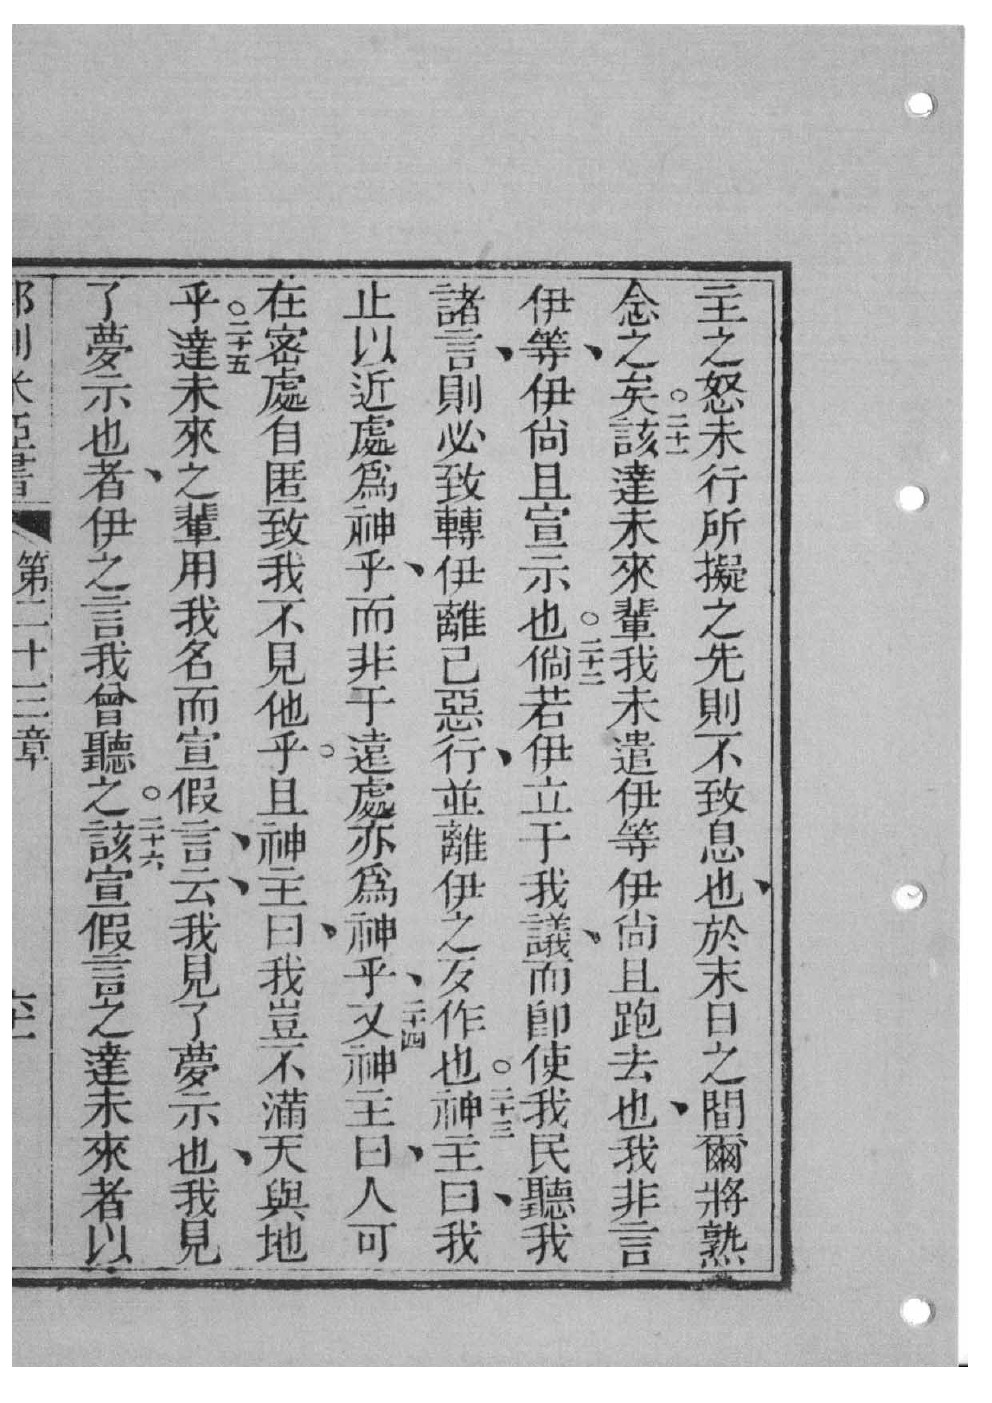 主之怒未行所擬之先則不致息也、於末日之間爾將熟
念之矣○二十一該達未來輩我未遣伊等伊尚且跑去也、我非言
伊等、伊尚且宣示也○二十二倘若伊立于我議、而卽使我民聽我
諸言、則必致轉伊離己惡行、並離伊之反作也○二十三神主曰、我
止以近處爲神乎、而非于遠處亦爲神乎、二十四又神主曰、人可
在密處自匿致我不見他乎○且神主曰、我豈不滿天與地
乎○二十五達未來之輩用我名而宣假言、云、我見了夢示也、我見
了夢示也者、伊之言我曾聽之○二十六該宣假言之達未來者以
耶利米亞書 第二十三章